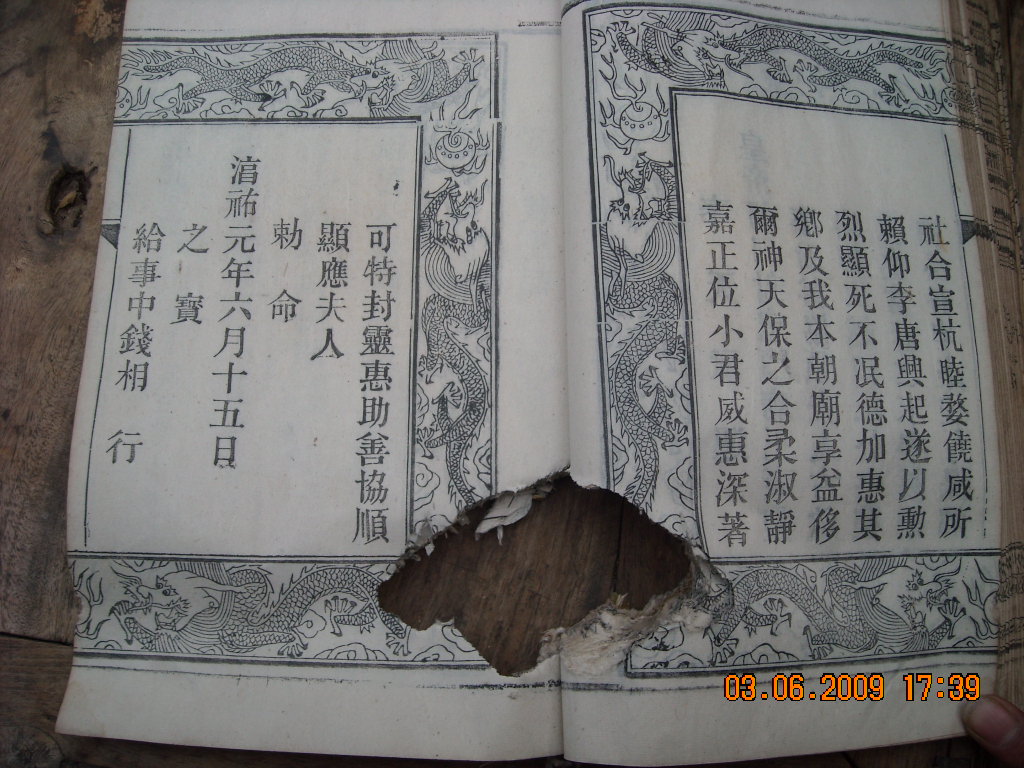 社合宣杭睦婺饒咸所
賴仰李唐興起遂以勳
烈顯死不泯德加惠其
鄉及我本朝廟享益侈
爾神天保之合柔淑靜
嘉正位小君威惠深著
可特封靈惠助善協順
顯應夫人
勅命
淯祐元年六月十五日
之寳
給事中錢相 行
03.06.2009 17:39